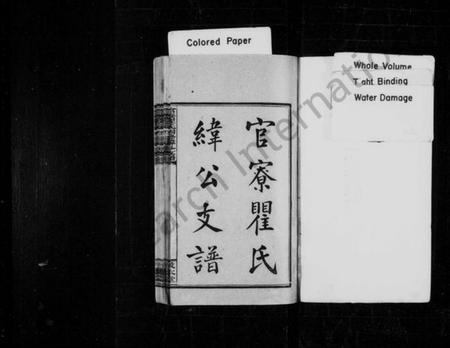 Colored Paper
Whole Volume
Tight Binding
Water Damage
官寮瞿氏
緯公支譜
earch Internation